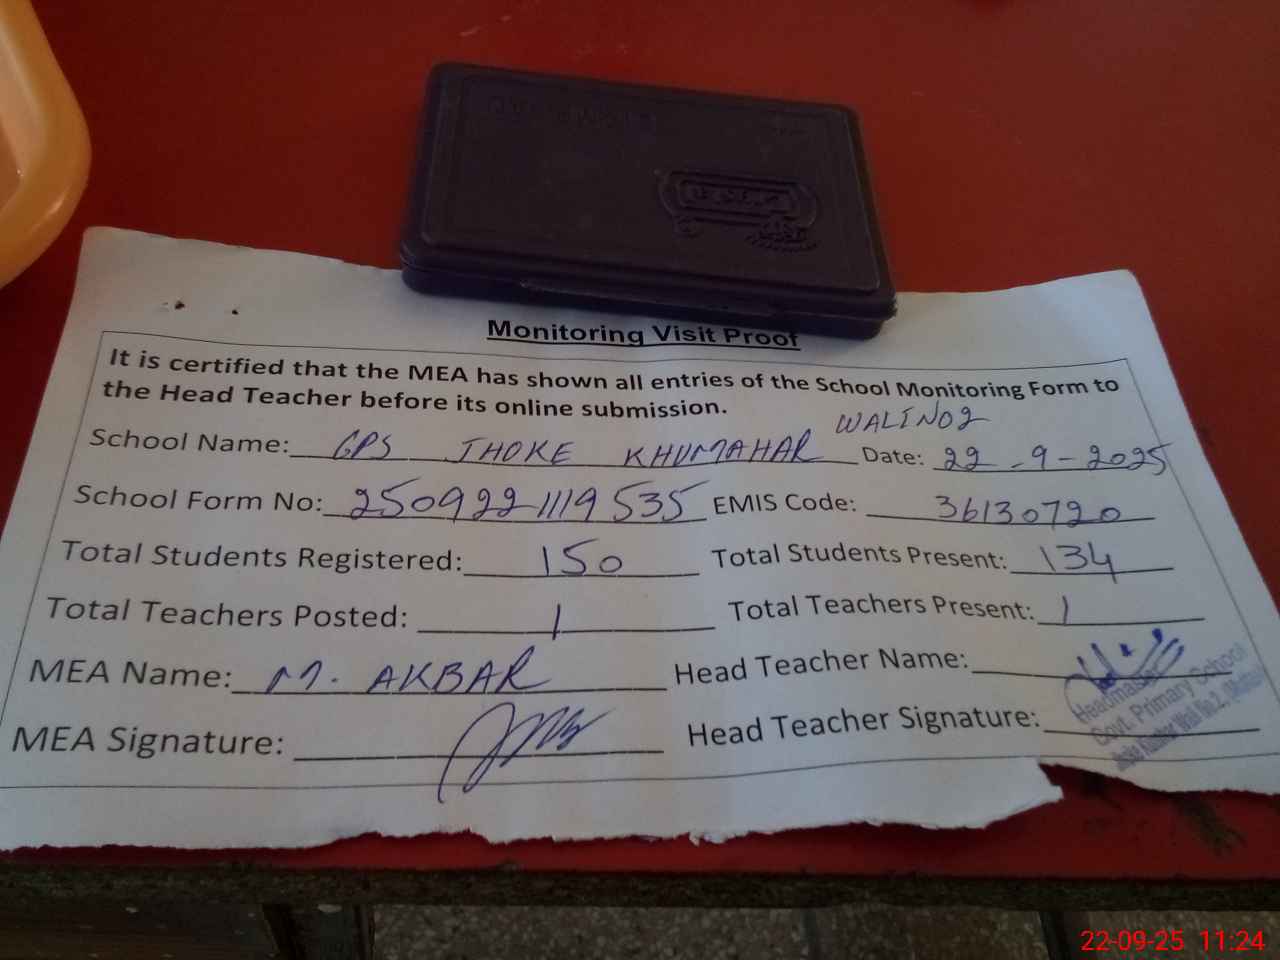 Monitoring Visit Proof
It is certified that the MEA has shown all entries of the School Monitoring Form to
the Head Teacher before its online submission.
WALI NO 2
School Name: GPS JHOKE KHUMAHAR Date: 22-9-2025
School Form No: 2509221119535 EMIS Code: 36130720
Total Students Registered: 150 Total Students Present: 134
Total Teachers Posted: 1 Total Teachers Present: 1
MEA Name: M. AKBAR Head Teacher Name:
MEA Signature: Head Teacher Signature:
Headmaster
Govt. Primary School
22-09-25 11:24